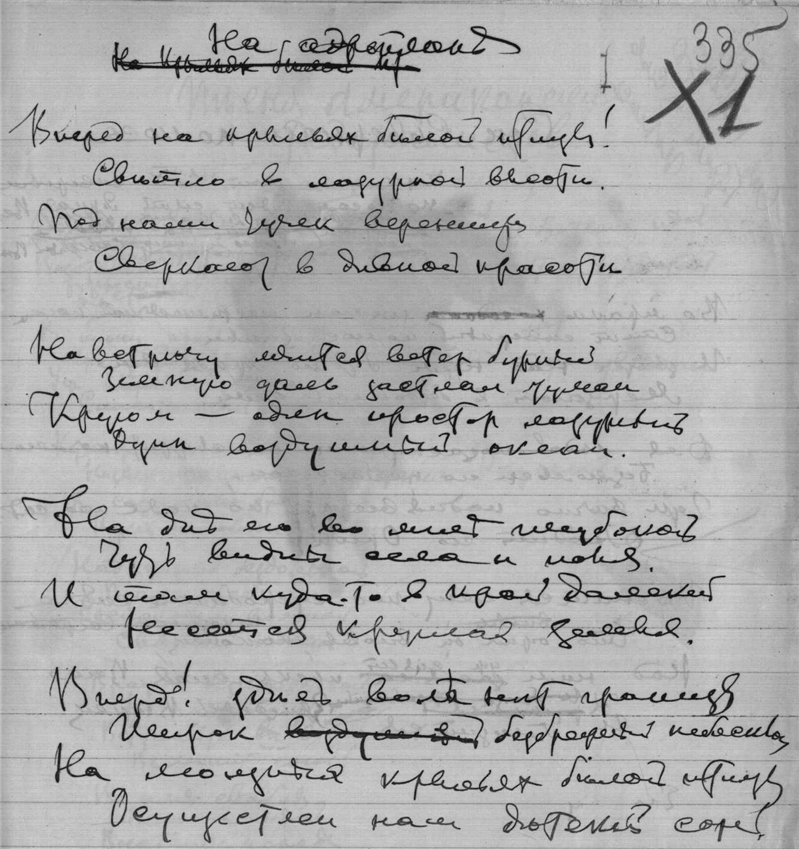 На аэроплане
На крыльях белой пт
335
XI
Вперед на крыльях белой птицы!
Светло в лазурной высоте.
Под нами тучек вереницы
Сверкают в дивной красоте
Навстречу мчится ветер бурный
Земную даль застлал туман
Кругом — один простор лазурный
Один воздушный океан.
На дне его во мгле глубокой
Чуть видны села и поля.
И там куда-то в край далекий
Несется круглая земля.
Вперед! здесь воле нет границы
Широк воздушный безбрежный небосвод
На крыльях белой птицы
Осуществлен наш детский сон.